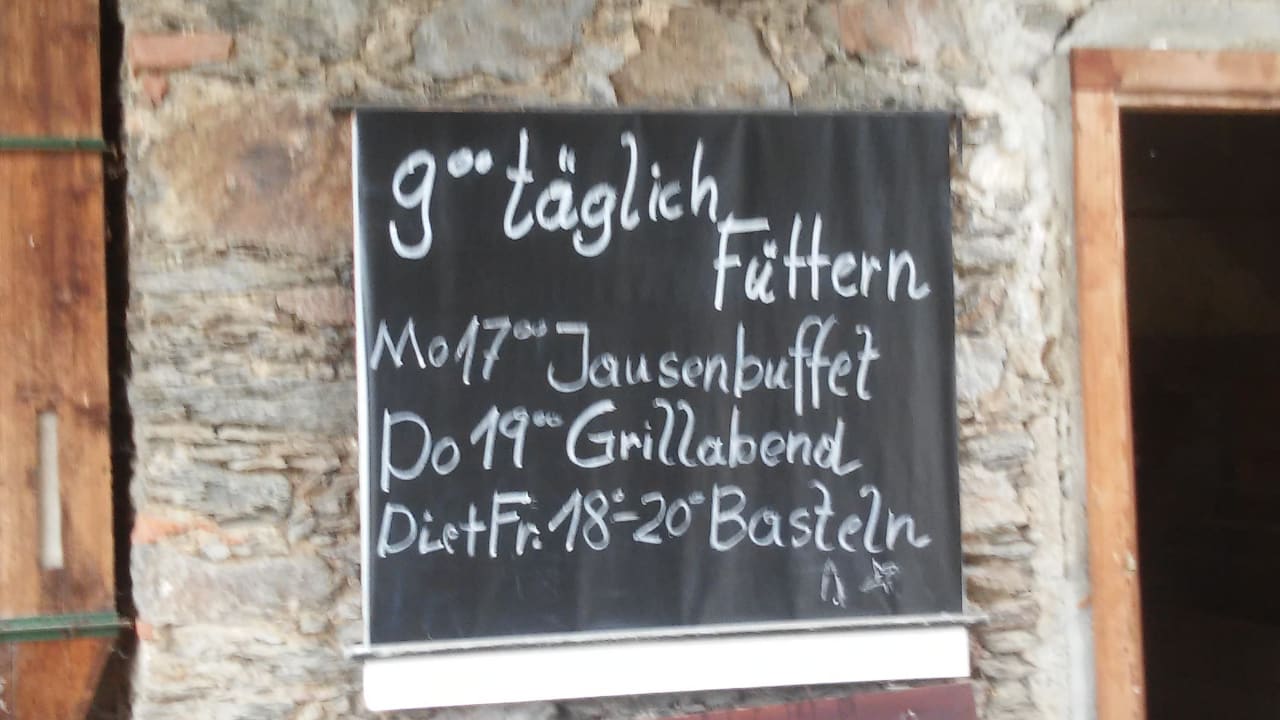 9⁰⁰ täglich
Füttern
Mo 17⁰⁰ Jausenbuffet
Do 19⁰⁰ Grillabend
Di+Fr. 18⁰-20⁰ Basteln